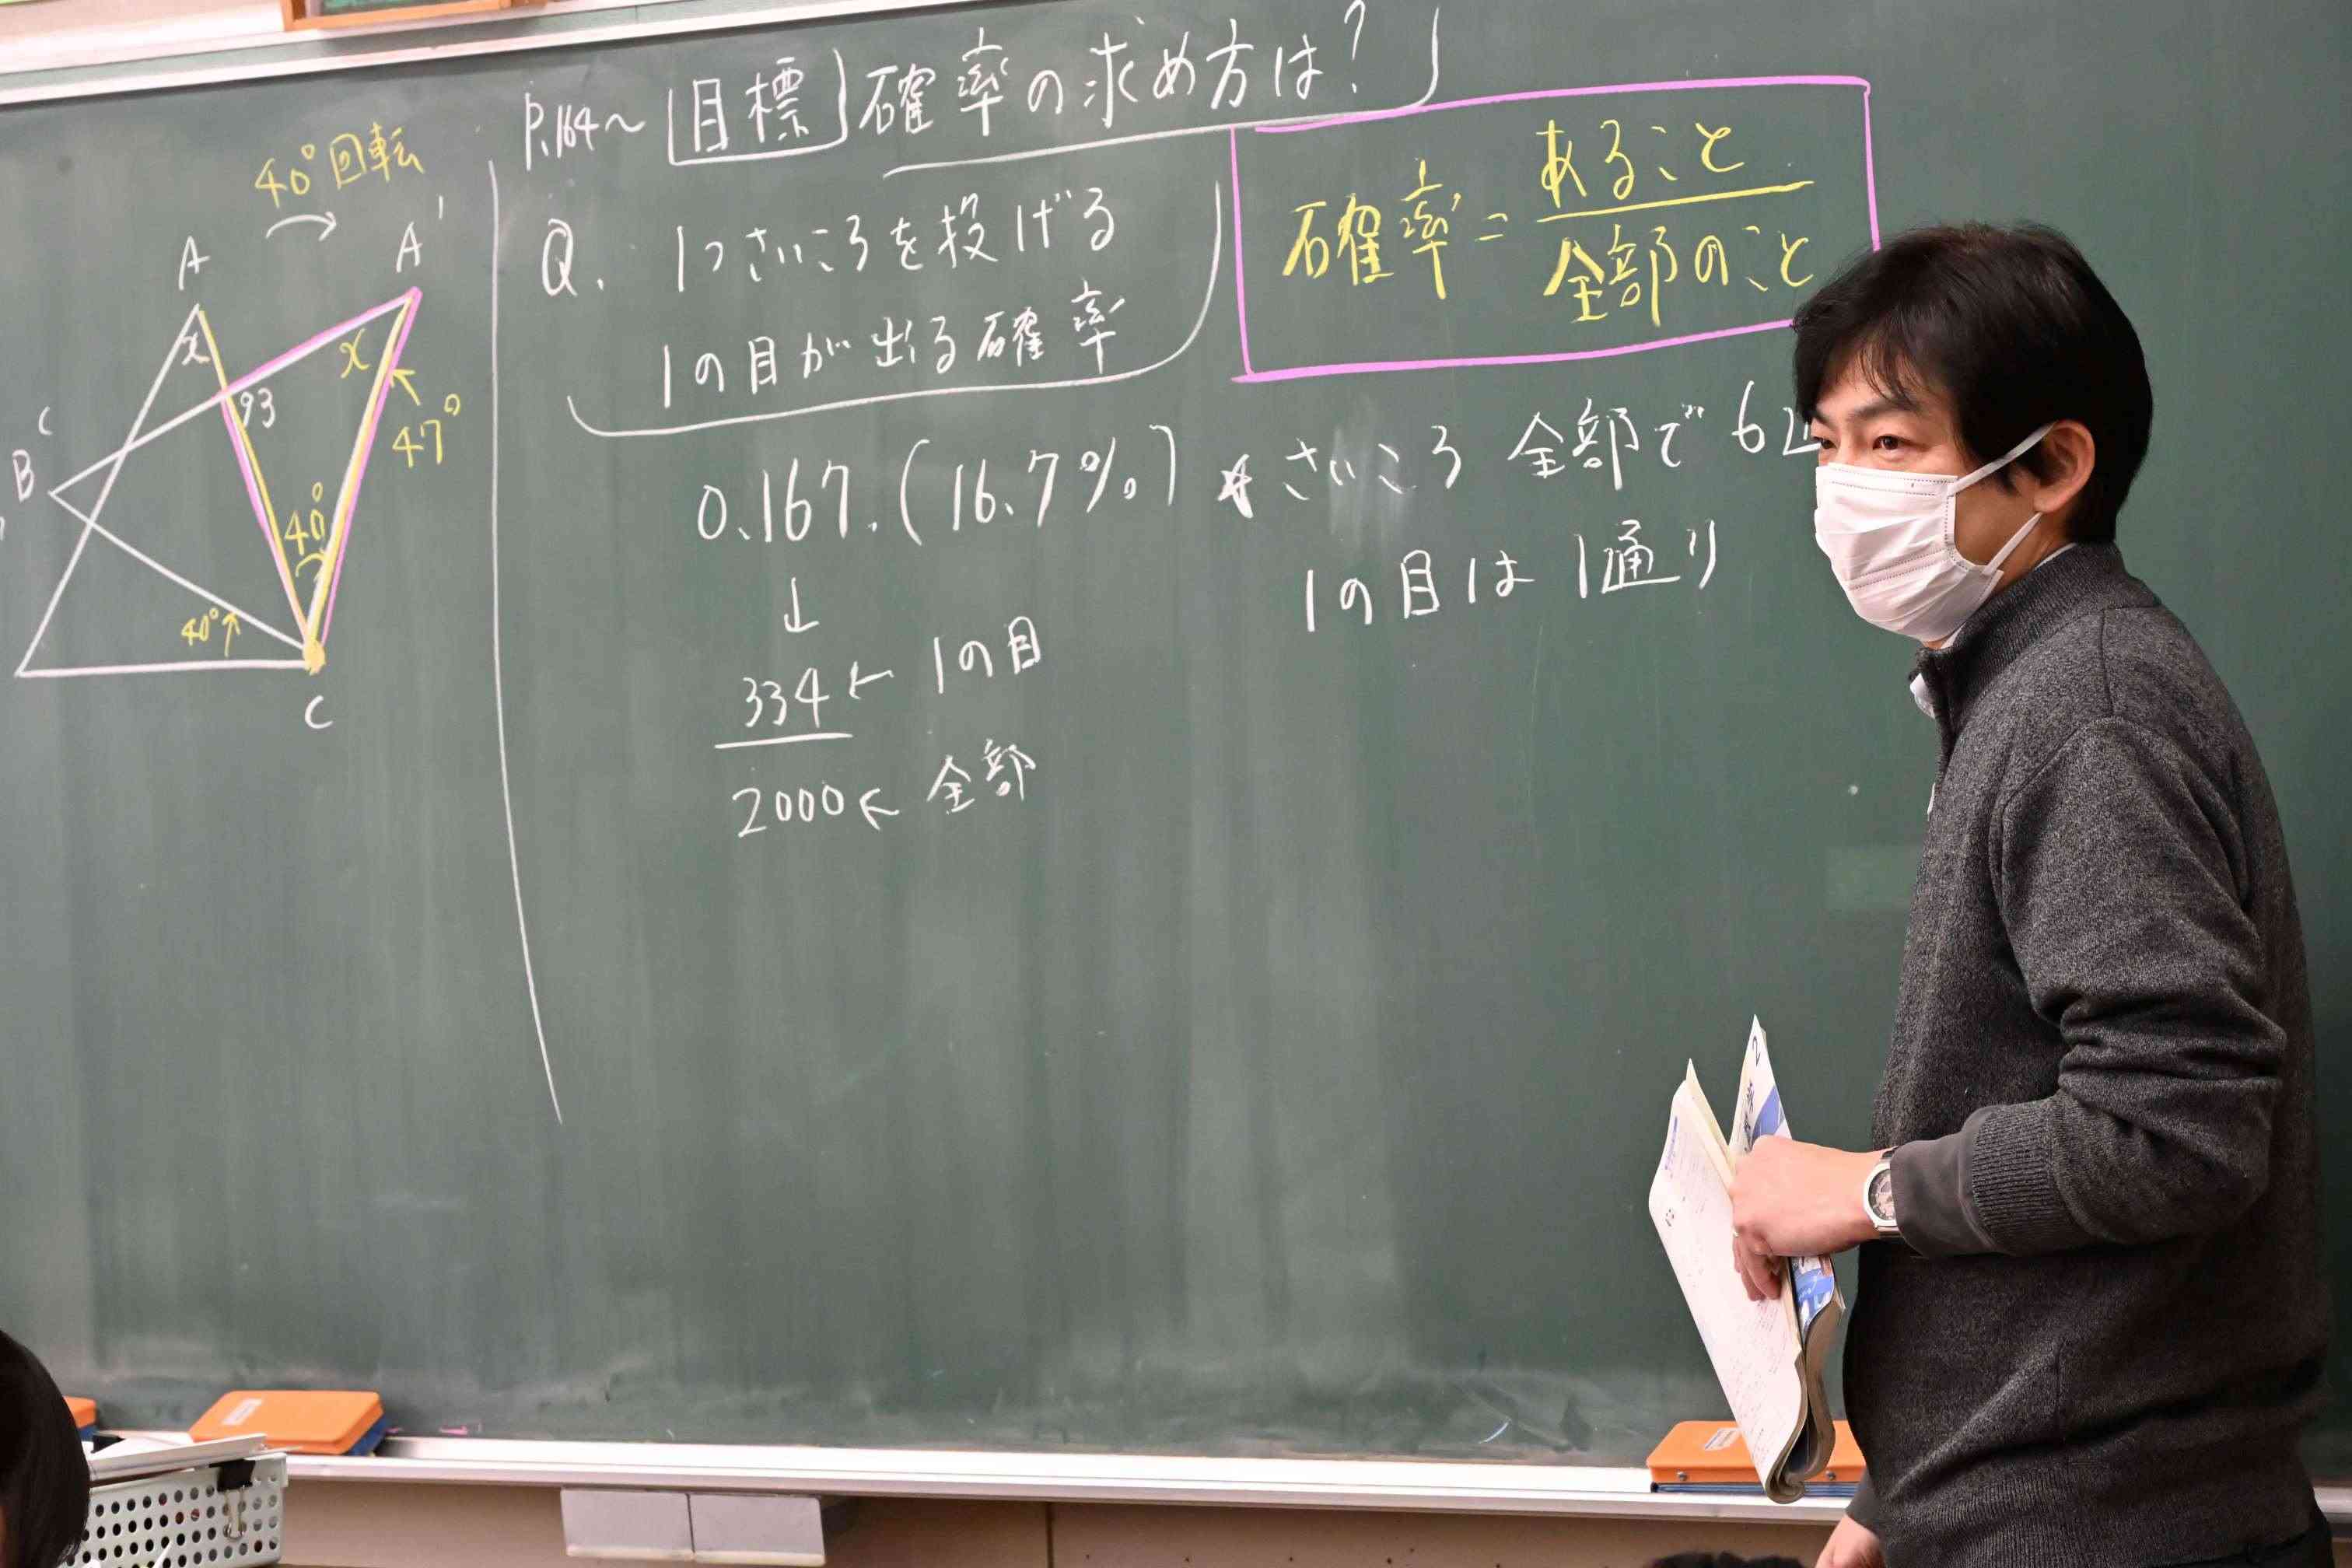 40°回転
A
A'
x
x
93
47°
B'
40°
40°
C
P.164〜 目標 確率の求め方は?
Q. 1つさいころを投げる
1の目が出る確率
確率=
あること
全部のこと
0.167.(16.7%)
334 ← 1の目
2000 ← 全部
さいころ 全部で 6
1の目は 1通り
2